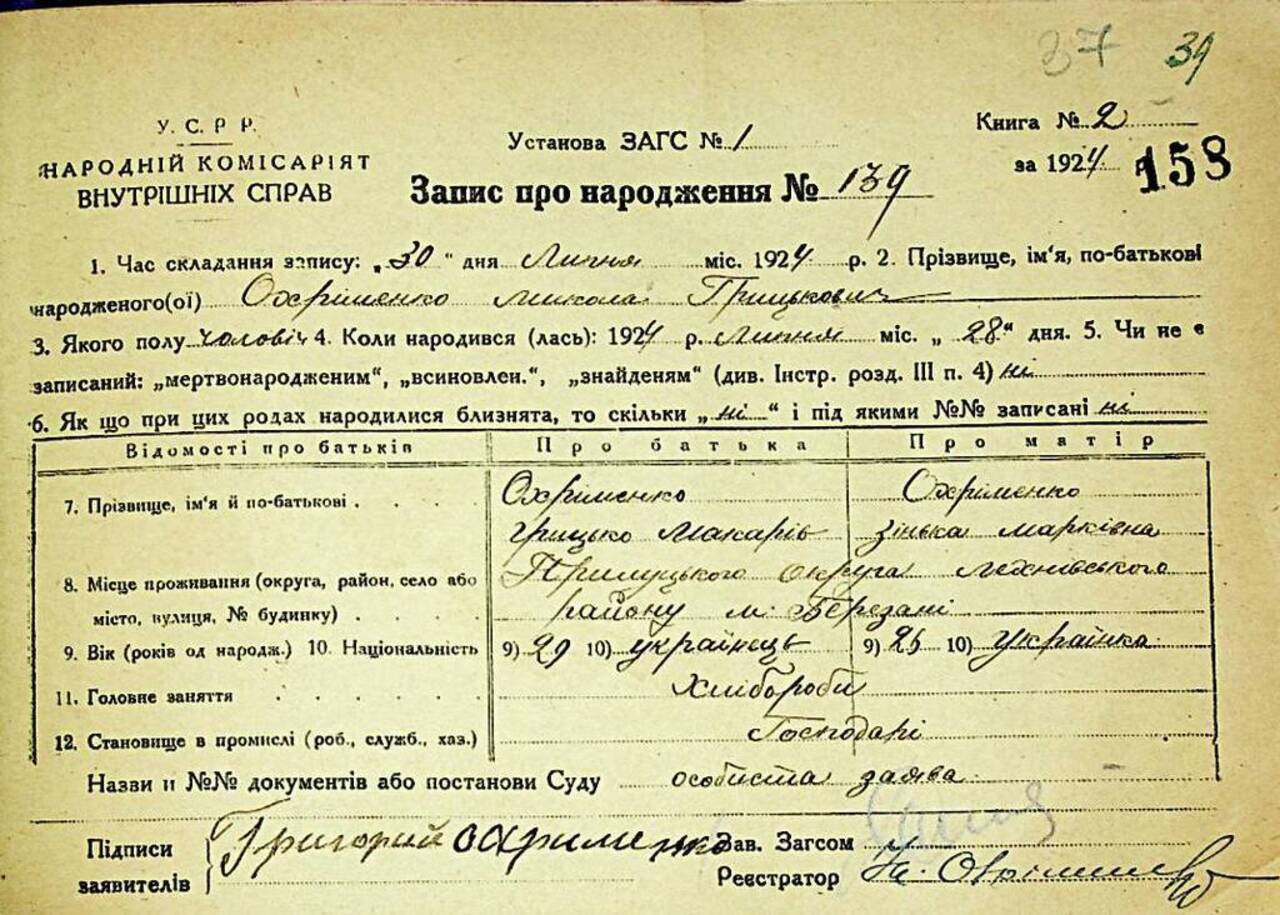 37 39
У. С. Р. Р.
НАРОДНІЙ КОМІСАРІЯТ
ВНУТРІШНІХ СПРАВ
Установа ЗАГС № 1
Книга № 2
за 1924
158
Запис про народження № 139
1. Час складання запису: „30“ дня Липня міс. 1924 р. 2. Прізвище, ім'я, по-батькові
народженого(ої) Охріменко Микола Грицькович
3. Якого полу чоловіч 4. Коли народився (лась): 1924 р. Липня міс. „28“ дня. 5. Чи не є
записаний: „мертвонародженим“, „всиновлен.“, „знайденям“ (див. Інстр. розд. III п. 4) ні
6. Як що при цих родах народилися близнята, то скільки „ні“ і під якими №№ записані ні
Відомості про батьків Про батька Про матір
7. Прізвище, ім'я й по-батькові . . . . Охріменко Охріменко
Грицько Макарів Зінька Марківна
8. Місце проживання (округа, район, село або Прилуцького округа
місто, вулиця, № будинку) . . . . району м. Березані
9. Вік (років од народж.) 10. Національність 9) 29 10) українець 9) 25 10) українка
11. Головне заняття . . . . . Хлібороби
12. Становище в промислі (роб., служб., хаз.) Господарі
Назви и №№ документів або постанови Суду особиста заява
Підписи
заявителів
Григорий Охрименко
Зав. Загсом
Реєстратор